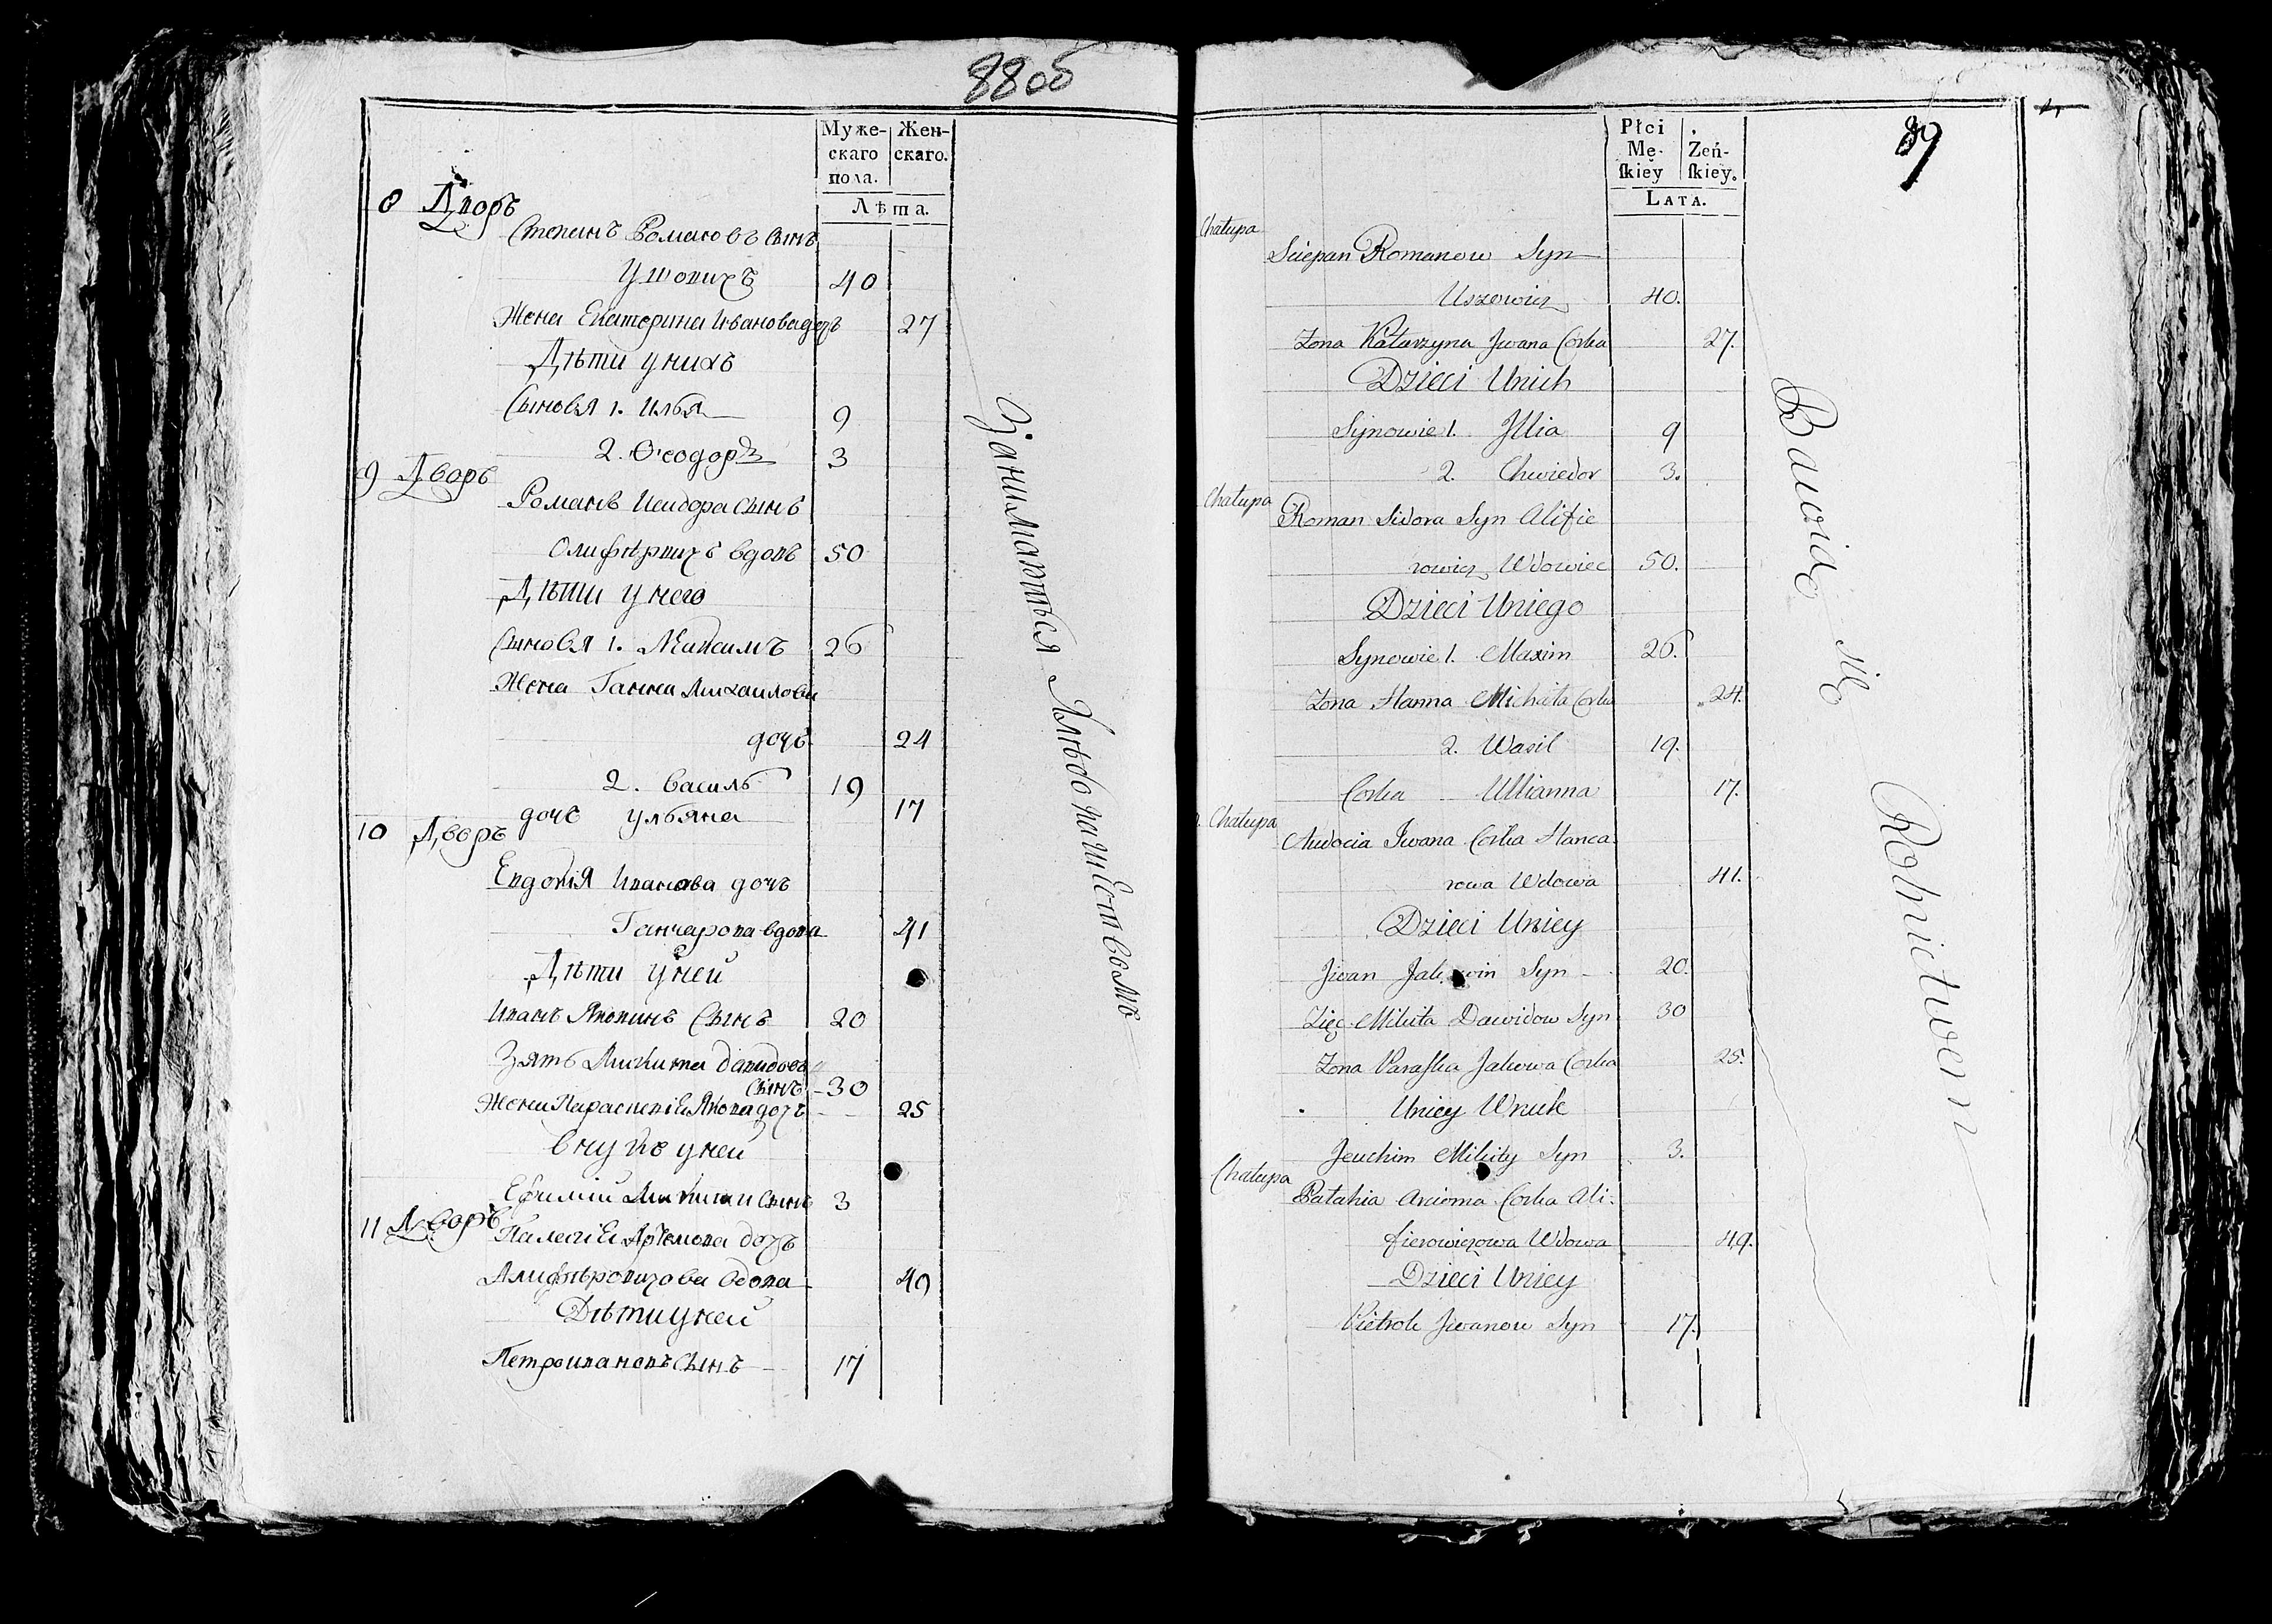 88об
Муже-
скаго
пола.
Жен-
скаго.
Лѣта.
8 Дворъ
Степанъ Романовъ сынъ
Ушовичъ 40
Жена Екатерина Иванова дочь 27
Дѣти у нихъ
Сыновья 1. Илья 9
2. Ѳеодоръ 3
9 Дворъ
Романъ Исидора сынъ
Олифѣровичъ вдовъ 50
Дѣти у него
Сыновья 1. Максимъ 26
Жена Ганна Михаилова
дочь 24
2. Василь 19
дочь Ульяна 17
10 Дворъ
Евдокія Иванова дочь
Ганчарова вдова 41
Дѣти у ней
Иванъ Яковинъ сынъ 20
Зять Микита Давидовъ
сынъ 30
Жена Параскевія Якова дочь 25
внукъ у ней
Ефимій Микити сынъ 3
11 Дворъ
Палагія Артемова дочь
Алифѣровичова вдова 49
Дѣти у ней
Петръ Ивановъ сынъ 17
Занимаються Хлѣбопашествомъ
89
Płci
Mę-
ſkiey
Żeń-
ſkiey.
LATA.
Chałupa
Sciepan Romanow Syn
Uszowicz 40.
Zona Katarzyna Jwana Corka 27.
Dzieci Unich
Synowie 1. Jllia 9
2. Chwiedor 3.
Chałupa
Roman Sidora Syn Alifie
rowicz Wdowiec 50.
Dzieci Uniego
Synowie 1. Maxim 26.
Zona Hanna Michała Corka 24.
2. Wasil 19.
Corka Ullianna 17.
Chałupa
Audocia Jwana Corka Hanca
rowa Wdowa 41.
Dzieci Uniey
Jwan Syn 20.
Zięć Mikita Dawidow Syn 30
Zona Paraſka Jakowa Corka 25.
Uniey Wnuk
Jeuchim Mikity Syn 3.
Chałupa
Patahia Arcioma Corka Ali-
fierowiczowa Wdowa 49.
Dzieci Uniey
Pietrok Jwanow Syn 17.
Bawio się Rolnictwem